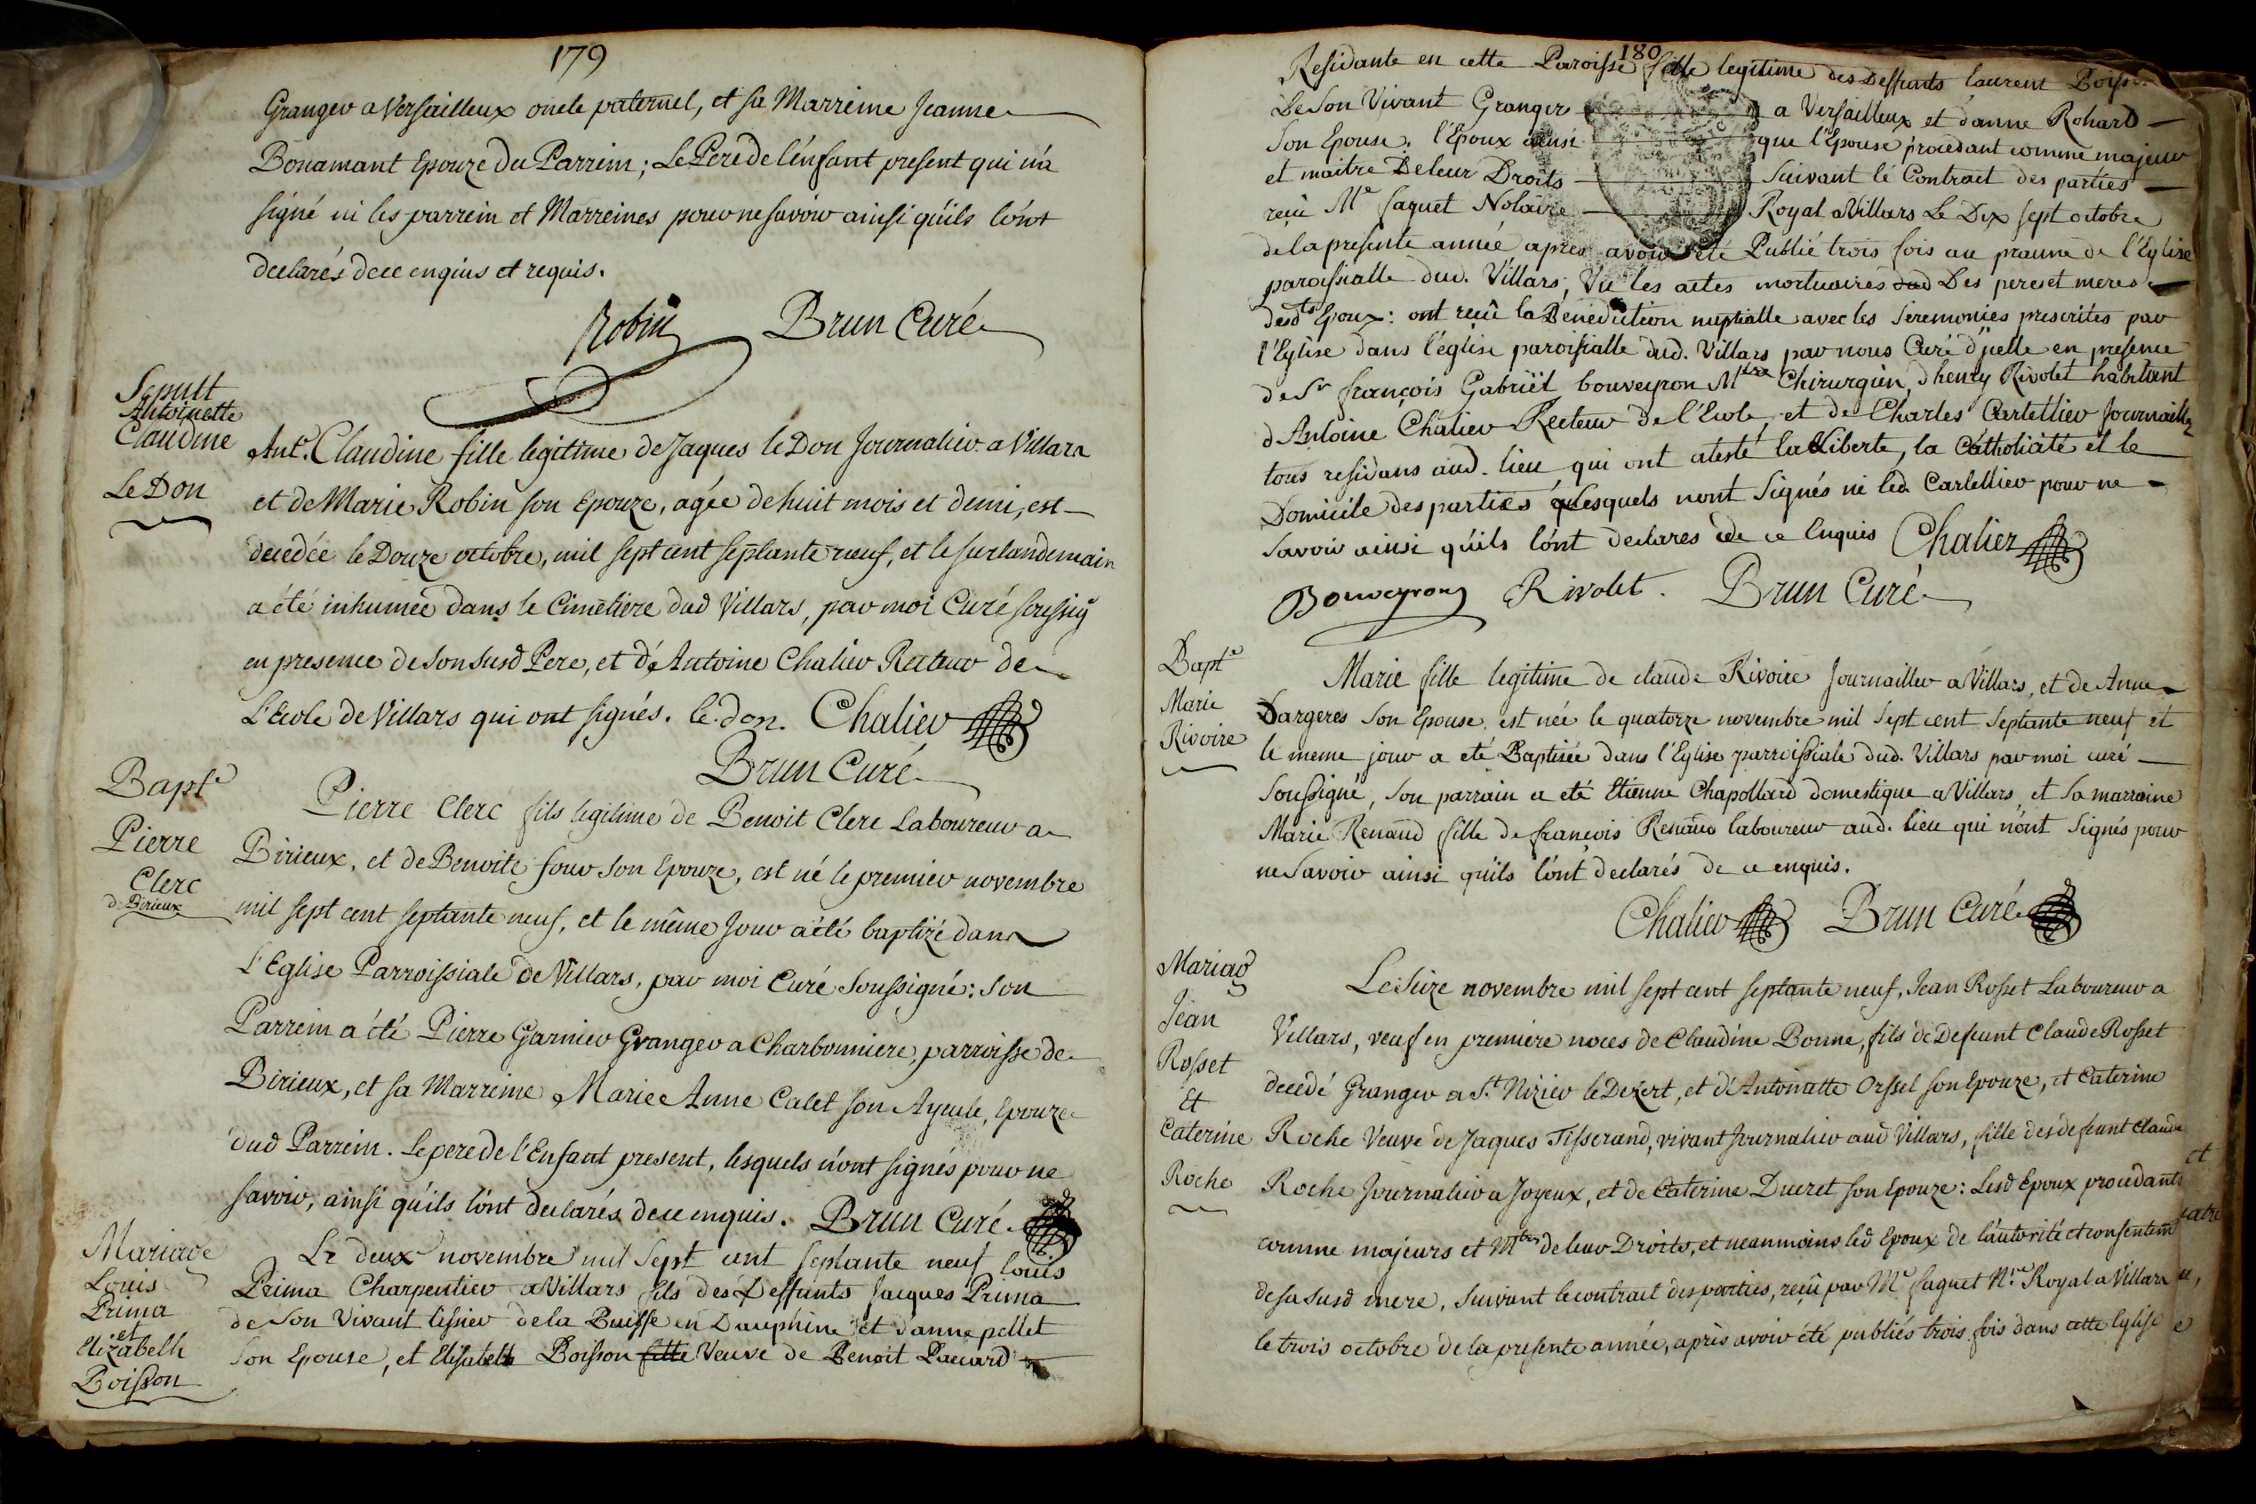 179
Granger a Versailleux oncle paternel, et sa Marreine Jeanne
Bonamant Epouze du Parrein; Le Pere de l'enfant present qui n'a
signé ni les parrein et Marreines pour ne savoir ainsi qu'ils l'ont
declarés de ce enquis et requis.
Robin Brun Curé
Sepult
Antoinette
Claudine
Le Don
Ant.e Claudine fille legittime de Jaques le Don Journalier a Villars
et de Marie Robin son Epouze, agée de huit mois et demi, est
decedée le Douze octobre, mil sept cent septante neuf, et le surlandemain
a été inhumée dans le Cimetiere dud Villars, par moi Curé soussig
en presence de son susd Pere, et d'Antoine Chalier Recteur de
L'Ecole de Villars qui ont signés. le don. Chalier
Brun Curé
Bapt.e
Pierre
Clerc
de Birieux
Pierre Clerc fils legitime de Benoit Clerc Laboureur a
Birieux, et de Benoite four son Epouze, est né le premier novembre
mil sept cent septante neuf, et le même Jour a été baptizé dans
L'Eglise Parroissiale de Villars, par moi Curé Soussigné: Son
Parrein a été Pierre Garnier Granger a Charbonniere, parroisse de
Birieux, et sa Marreine Marie Anne Calet son Ayeule, Epouze
dud Parrein. Le pere de l'Enfant present, lesquels n'ont signés pour ne
savoir, ainsi qu'ils l'ont declarés de ce enquis. Brun Curé
Mariage
Louis
Prima
et
Elizabeth
Boisson
Le deux novembre mil Sept cent septante neuf louis
Prima Charpentier a Villars fils des Deffunts Jacques Prima
de Son Vivant tisnier de la Buisse en Dauphine et d'anne pellet
Son Epouse, et Elisabeth Boisson fille Veuve de Benoit Pacard
180
Residante en cette Paroisse fille legitime des Deffunts laurent Boiss
De Son Vivant Granger a Versailleux et d'anne Rohard
Son Epouse. l'Epoux ainsi que l'Epouse procedant comme majeur
et maitre De leur Droits Suivant le Contrat des parties
reçu Me faguet Notaire Royal a Villars Le Dix sept octobre
de la presente année apres avoir été Publié trois fois au praune de l'Eglise
paroissialle dud. Villars, Vu les actes mortuaires dud Des peres et meres
desdts Epoux: ont reçû la Bénédiction nuptialle avec les Séremonies prescrites par
l'Eglise dans l'église paroissialle dud. Villars par nous Curé d'jcelle en présence
de Sr françois Gabriël bouveyron Mtre Chirurgien, d henry Rivolet habitant
d Antoine Chalier Recteur de l'Ecole, et de Charles Carlellier Journaillier
tous residans aud. lieu qui ont atesté la Liberte, la Catholicité et le
Domicile des parties Lesquels n'ont Signés ni led. Carlellier pour ne
Savoir ainsi qu'ils l'ont declares de ce Enquis Chalier
Bouveyron Rivolet. Brun Curé
Bapt.e
Marie
Rivoire
Marie fille legitime de claude Rivoire Journaillier a Villars, et de Anne
Dargeres Son Epouse est née le quatorze novembre mil Sept cent Septante neuf et
le meme jour a eté Baptisée dans l'Eglise parroissiale dud. Villars par moi curé
Soussigné, Son parrain a eté Etienne Chapollard domestique a Villars, et Sa marraine
Marie Renaud fille de françois Renaud laboureur aud. lieu qui n'ont Signés pour
ne Savoir ainsi qu'ils l'ont declarés de ce enquis.
Chalier Brun Curé
Mariag
Jean
Rosset
Et
Caterine
Roche
Le Seize novembre mil sept cent septante neuf, Jean Rosset Laboureur a
Villars, veuf en premiere noces de Claudine Bonne, fils de Defeunt Claude Rosset
decedé Granger a St. Nizier le Dezert, et d'Antoinette Orssel son Epouze, et Caterine
Roche Veuve de Jaques Tisserand, vivant Journalier aud Villars, fille des defeunt Claude
Roche Journalier a Joyeux, et de Caterine Ducret son Epouze: Lesd Epoux procedants
comme majeurs et Mtres de leur Droits, et neanmoins led Epoux de l'autorité et consentem
de sa susd mere, suivant le contrat des parties, reçû par Me faguet Nre Royal a Villars
le trois octobre de la presente année, après avoir été publiés trois fois dans cette Eglise